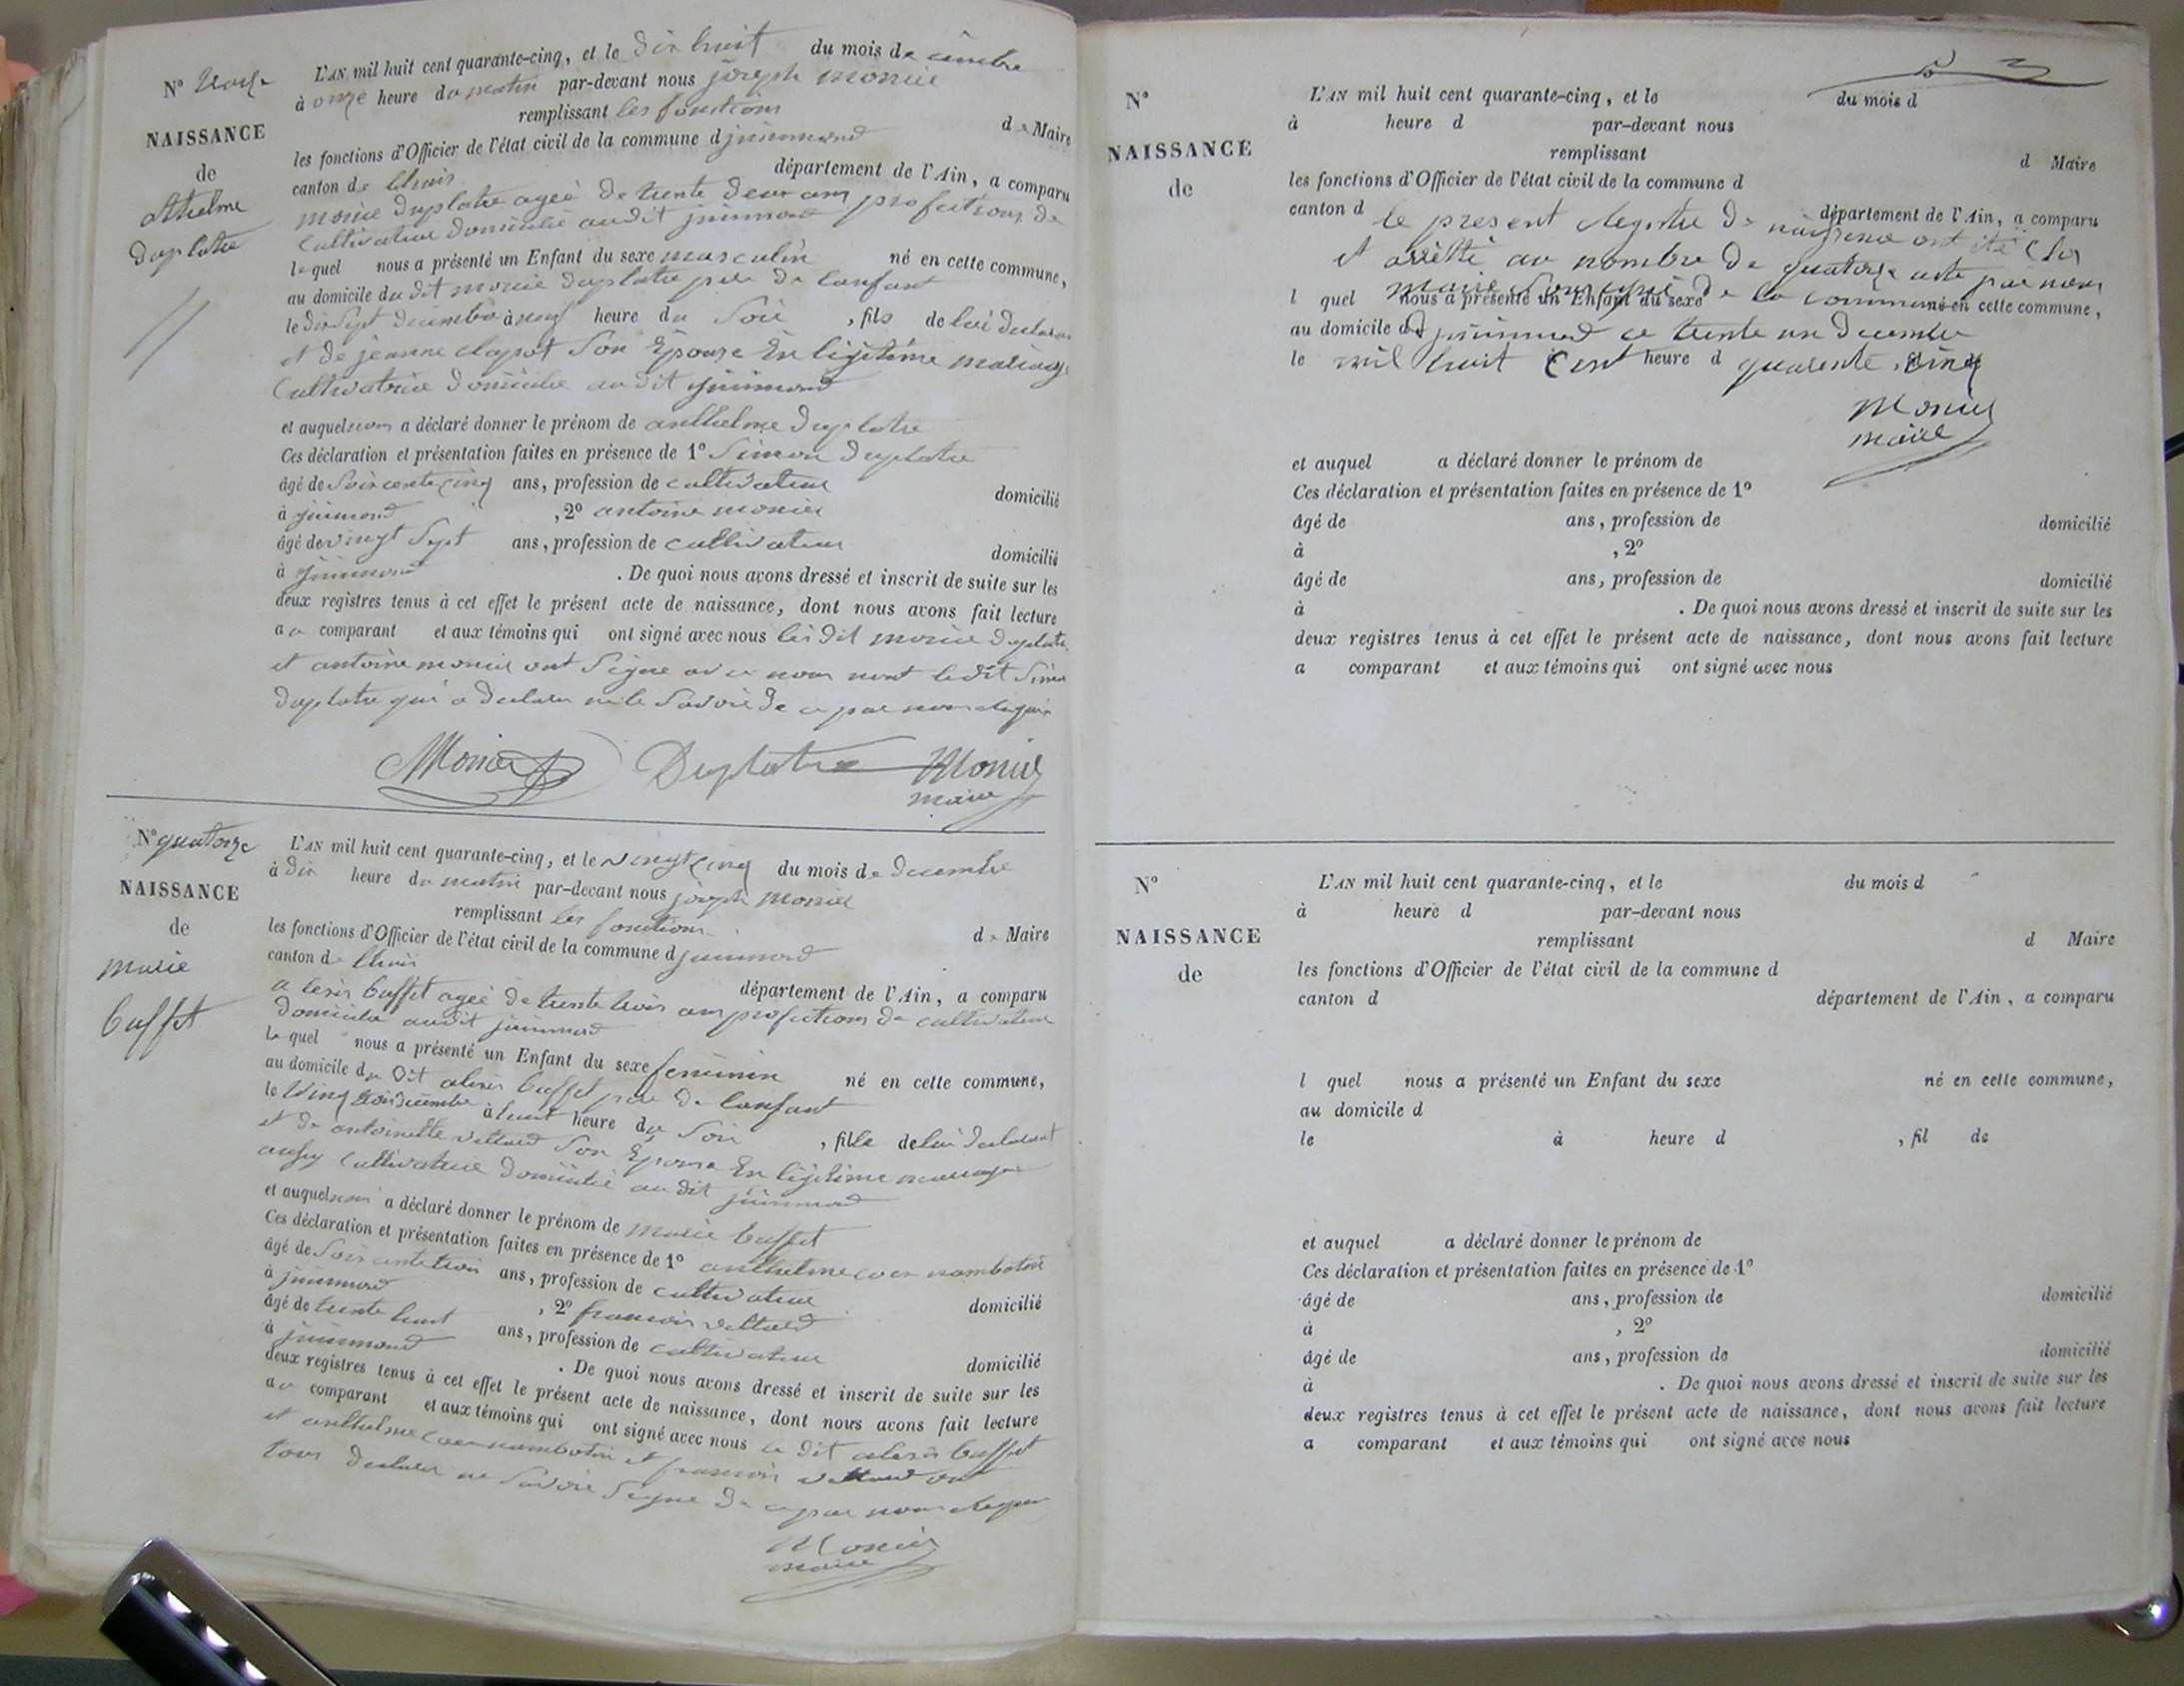 N° treize
NAISSANCE
de
Athelme
Duplatre
L'AN mil huit cent quarante-cinq, et le dix huit du mois de
à onze heure du matin par-devant nous joseph monier
remplissant les fonctions d Maire
les fonctions d'Officier de l'état civil de la commune d jujurieux
canton de département de l'Ain, a comparu
duplatre ageé de trente deux ans profeetions de
Cultivateur domicilié audit
lequel nous a présenté un Enfant du sexe masculin né en cette commune,
au domicile du dit duplatre pere de lanfant
le dix Sept decembre à neuf heure du Soir , fils de lui declarant
et de jeanne Son Epouse En ligitime mariage
Cultivatrice domicilie audit
et auquel nous a déclaré donner le prénom de anthelme duplatre
Ces déclaration et présentation faites en présence de 1° Simon duplatre
âgé de Soixcente cinq ans, profession de cultivateur domicilié
à , 2° antoine monier
âgé de vingt Sept ans, profession de cultivateur domicilié
à . De quoi nous avons dressé et inscrit de suite sur les
deux registres tenus à cet effet le présent acte de naissance, dont nous avons fait lecture
au comparant et aux témoins qui ont signé avec nous les dit duplatre
et antoine monier ont Signe avec nous nont ledit Simon
duplatre qui a declarer ne le Savoir de ce par nous
Monier Duplatre Monier
maire
N° quatorze
NAISSANCE
de
marie
buffet
L'AN mil huit cent quarante-cinq, et le vingt cinq du mois de decembre
à dix heure du matin par-devant nous joseph monier
remplissant les fonctions d Maire
les fonctions d'Officier de l'état civil de la commune d
canton de département de l'Ain, a comparu
alexis buffet ageé de trente trois ans profeetions de cultivateur
domicilie audit
le quel nous a présenté un Enfant du sexe feminin né en cette commune,
au domicile du dit alexis buffet pere de lanfant
le à huit heure du Soir , fille de lui declarant
et de antoinette Son Epouse En ligitime mariage
cultivatrice domicilié au dit
et auquel nous a déclaré donner le prénom de marie buffet
Ces déclaration et présentation faites en présence de 1° anthelme
âgé de Soixcente trois ans, profession de cultivateur domicilié
à , 2° francois
âgé de trente huit ans, profession de cultivateur domicilié
à . De quoi nous avons dressé et inscrit de suite sur les
deux registres tenus à cet effet le présent acte de naissance, dont nous avons fait lecture
au comparant et aux témoins qui ont signé avec nous le dit alexis buffet
et anthelme et francois ont
tous declarer ne Savoir Signe de ce par nous
Monier
maire
N°
NAISSANCE
de
L'AN mil huit cent quarante-cinq, et le du mois d
à heure d par-devant nous
remplissant d Maire
les fonctions d'Officier de l'état civil de la commune d
canton d département de l'Ain, a comparu
le present Registre de naissence ont été Clos
et arrêtté au nombre de quatorze acte par nous
maire Soussigné de la commune
l quel nous a présenté un Enfant du sexe né en cette commune,
au domicile d ce trente un decembre
le mil huit Cent heure d quarente cinq
Monier
maire
et auquel a déclaré donner le prénom de
Ces déclaration et présentation faites en présence de 1°
âgé de ans, profession de domicilié
à , 2°
âgé de ans, profession de domicilié
à . De quoi nous avons dressé et inscrit de suite sur les
deux registres tenus à cet effet le présent acte de naissance, dont nous avons fait lecture
a comparant et aux témoins qui ont signé avec nous
N°
NAISSANCE
de
L'AN mil huit cent quarante-cinq, et le du mois d
à heure d par-devant nous
remplissant d Maire
les fonctions d'Officier de l'état civil de la commune d
canton d département de l'Ain, a comparu
l quel nous a présenté un Enfant du sexe né en cette commune,
au domicile d
le à heure d , fil de
et auquel a déclaré donner le prénom de
Ces déclaration et présentation faites en présence de 1°
âgé de ans, profession de domicilié
à , 2°
âgé de ans, profession de domicilié
à . De quoi nous avons dressé et inscrit de suite sur les
deux registres tenus à cet effet le présent acte de naissance, dont nous avons fait lecture
a comparant et aux témoins qui ont signé avec nous